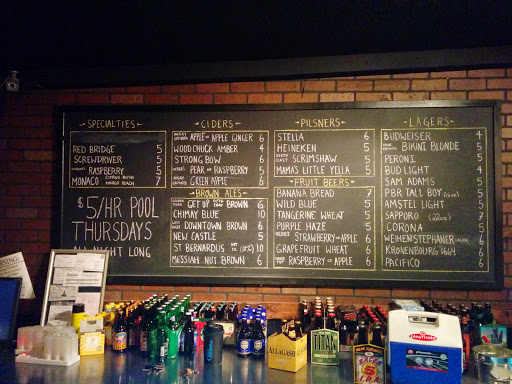 SPECIALTIES
RED BRIDGE 5
SCREWDRIVER 5
RASPBERRY 5
MONACO 7
$5/HR POOL
THURSDAYS
ALL NIGHT LONG
CIDERS
APPLE OR APPLE GINGER 6
WOOD CHUCK AMBER 4
STRONG BOW 6
PEAR OR RASPBERRY 5
GREEN APPLE 6
BROWN ALES
GET UP BROWN 6
CHIMAY BLUE 10
DOWNTOWN BROWN 6
NEW CASTLE 5
ST BERNARDUS 10
MESSIAH NUT BROWN 6
PILSNERS
STELLA 6
HEINEKEN 5
SCRIMSHAW 5
MAMA'S LITTLE YELLA 5
FRUIT BEERS
BANANA BREAD 7
WILD BLUE 5
TANGERINE WHEAT 5
PURPLE HAZE 5
STRAWBERRY OR APPLE 6
GRAPEFRUIT WHEAT 6
RASPBERRY OR APPLE 6
LAGERS
BUDWEISER 4
BIKINI BLONDE 5
PERONI 5
BUD LIGHT 4
SAM ADAMS 5
PBR TALL BOY 5
AMSTEL LIGHT 5
SAPPORO 7
CORONA 5
WEIHENSTEPHANER 6
KRONENBOURG 1664 6
PACIFICO 6
ALLAGASH
TITAN